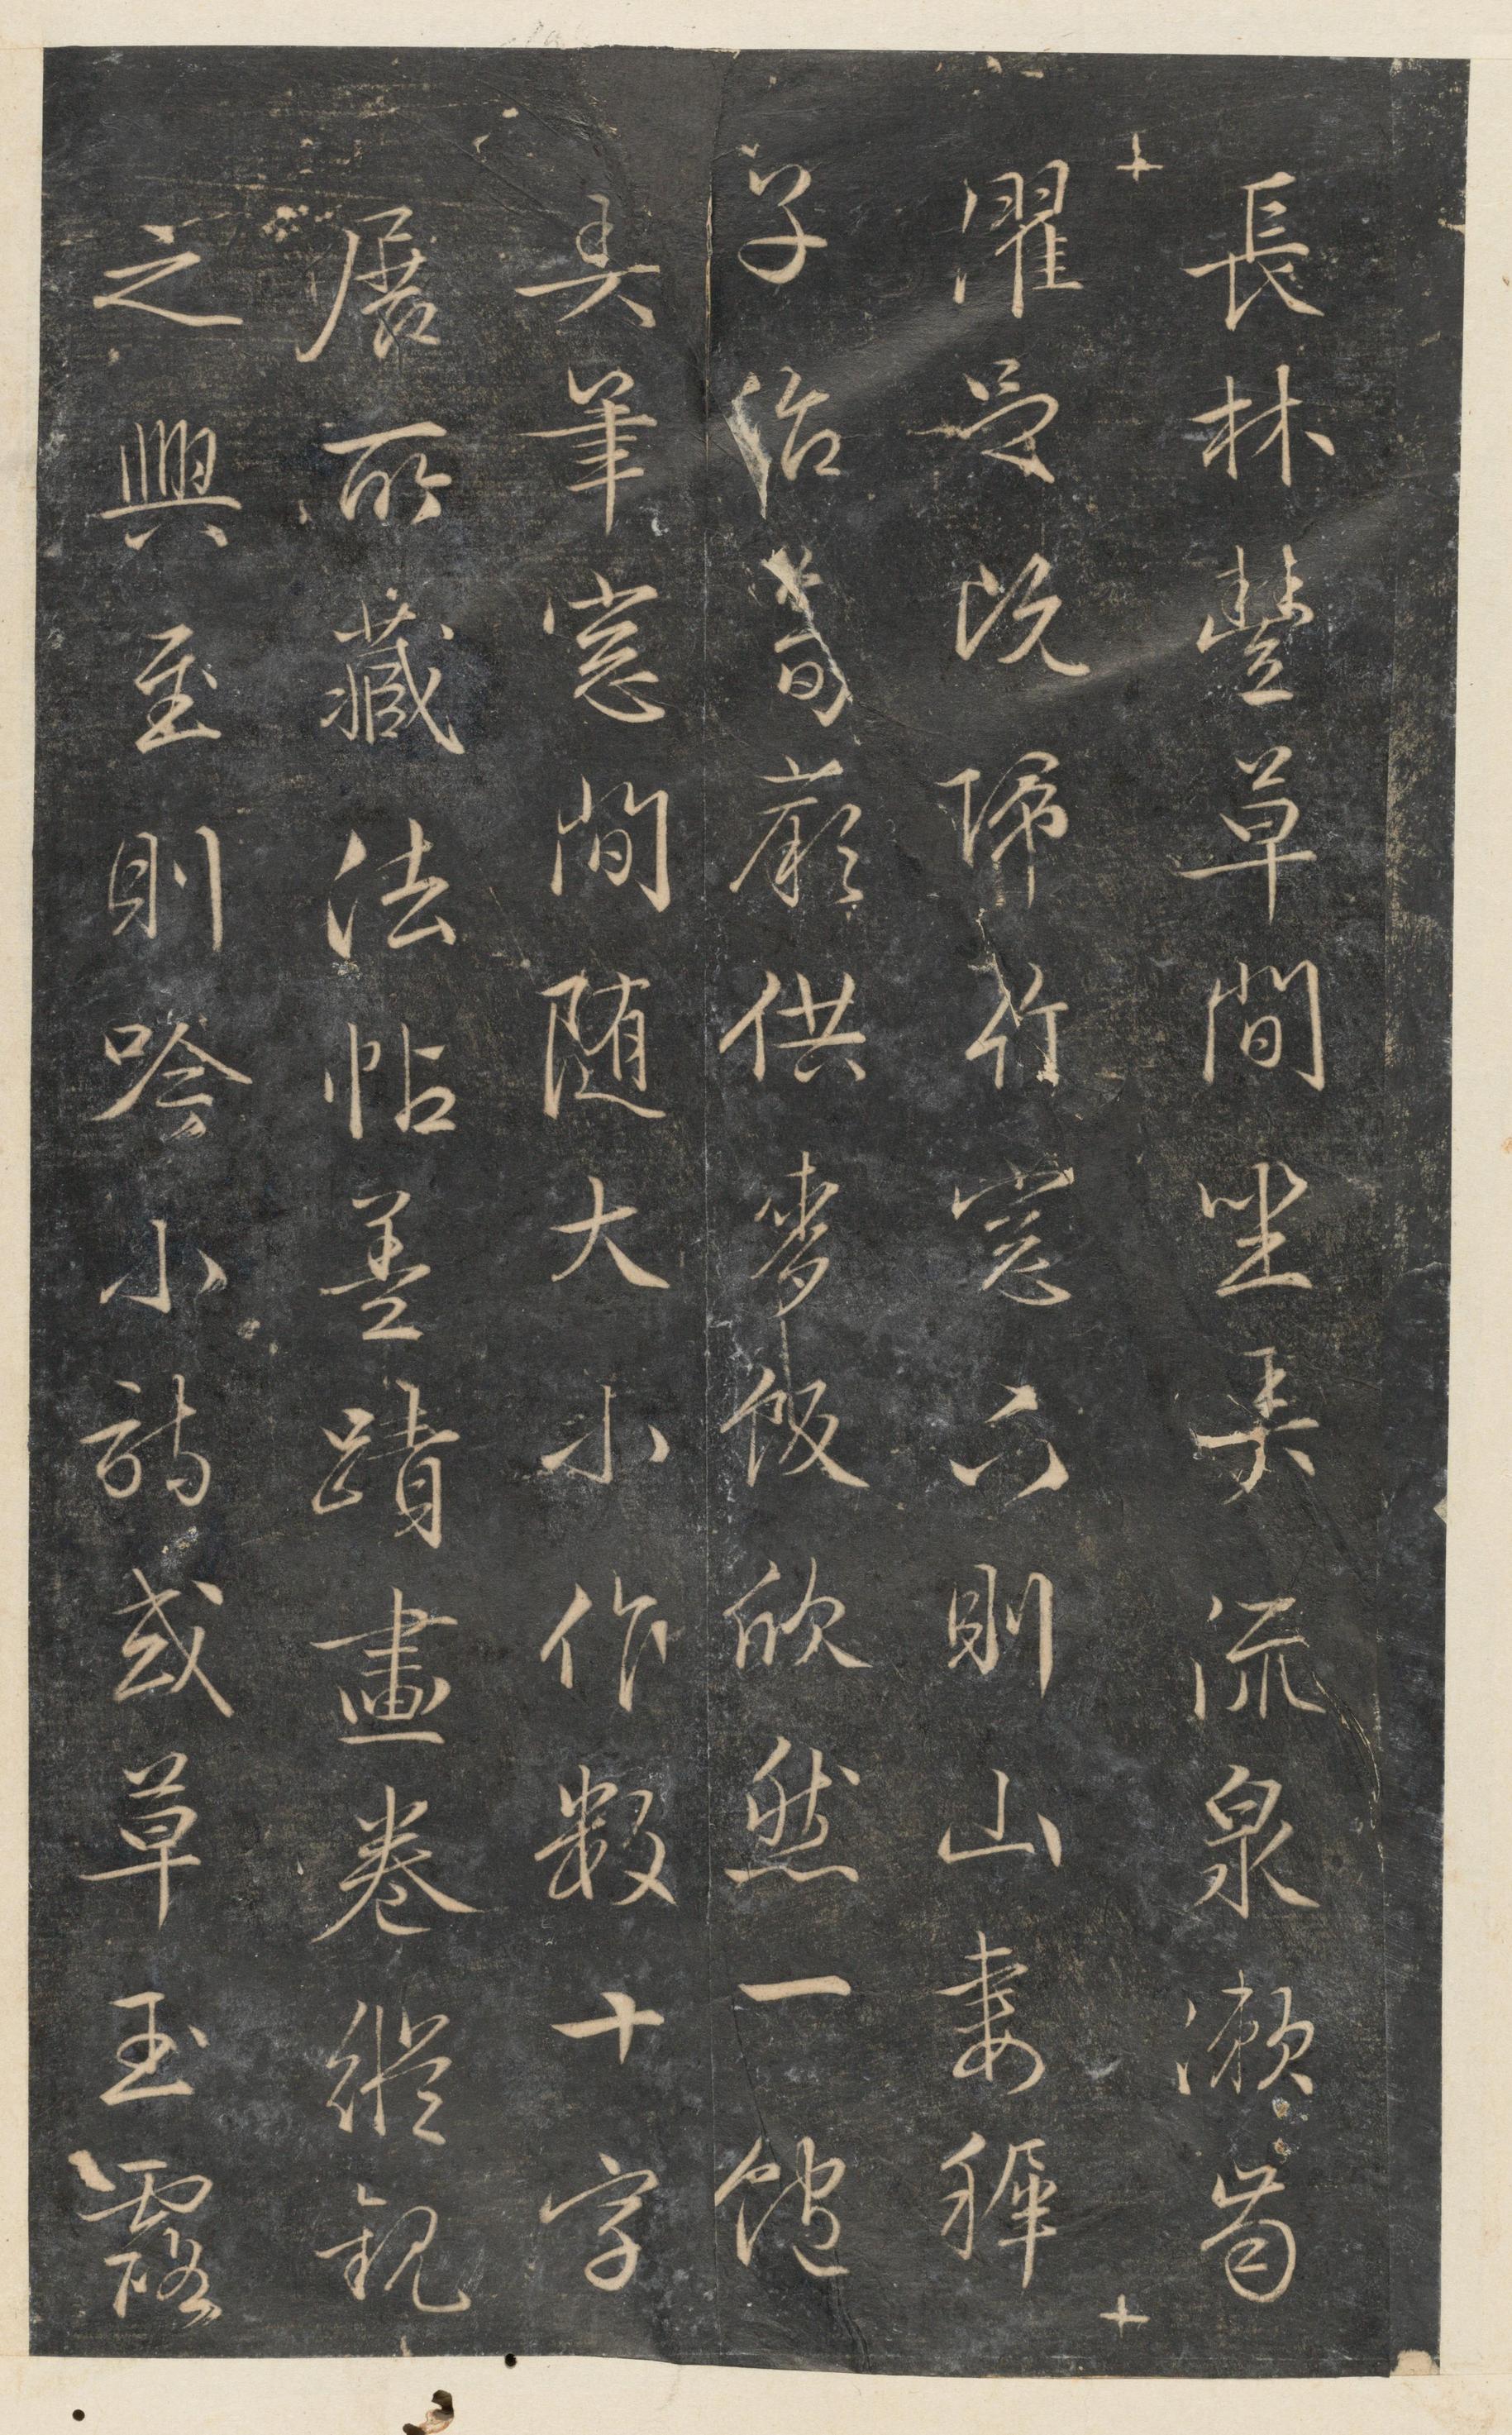 長林豐草間坐弄流泉漱齒
濯足既歸竹窓下則山妻稺
子治筍蕨供麥飯欣然一飽
弄筆窓間随大小作數十字
展所藏法帖墨蹟畫卷縱觀
之興至則吟小詩或草玉露